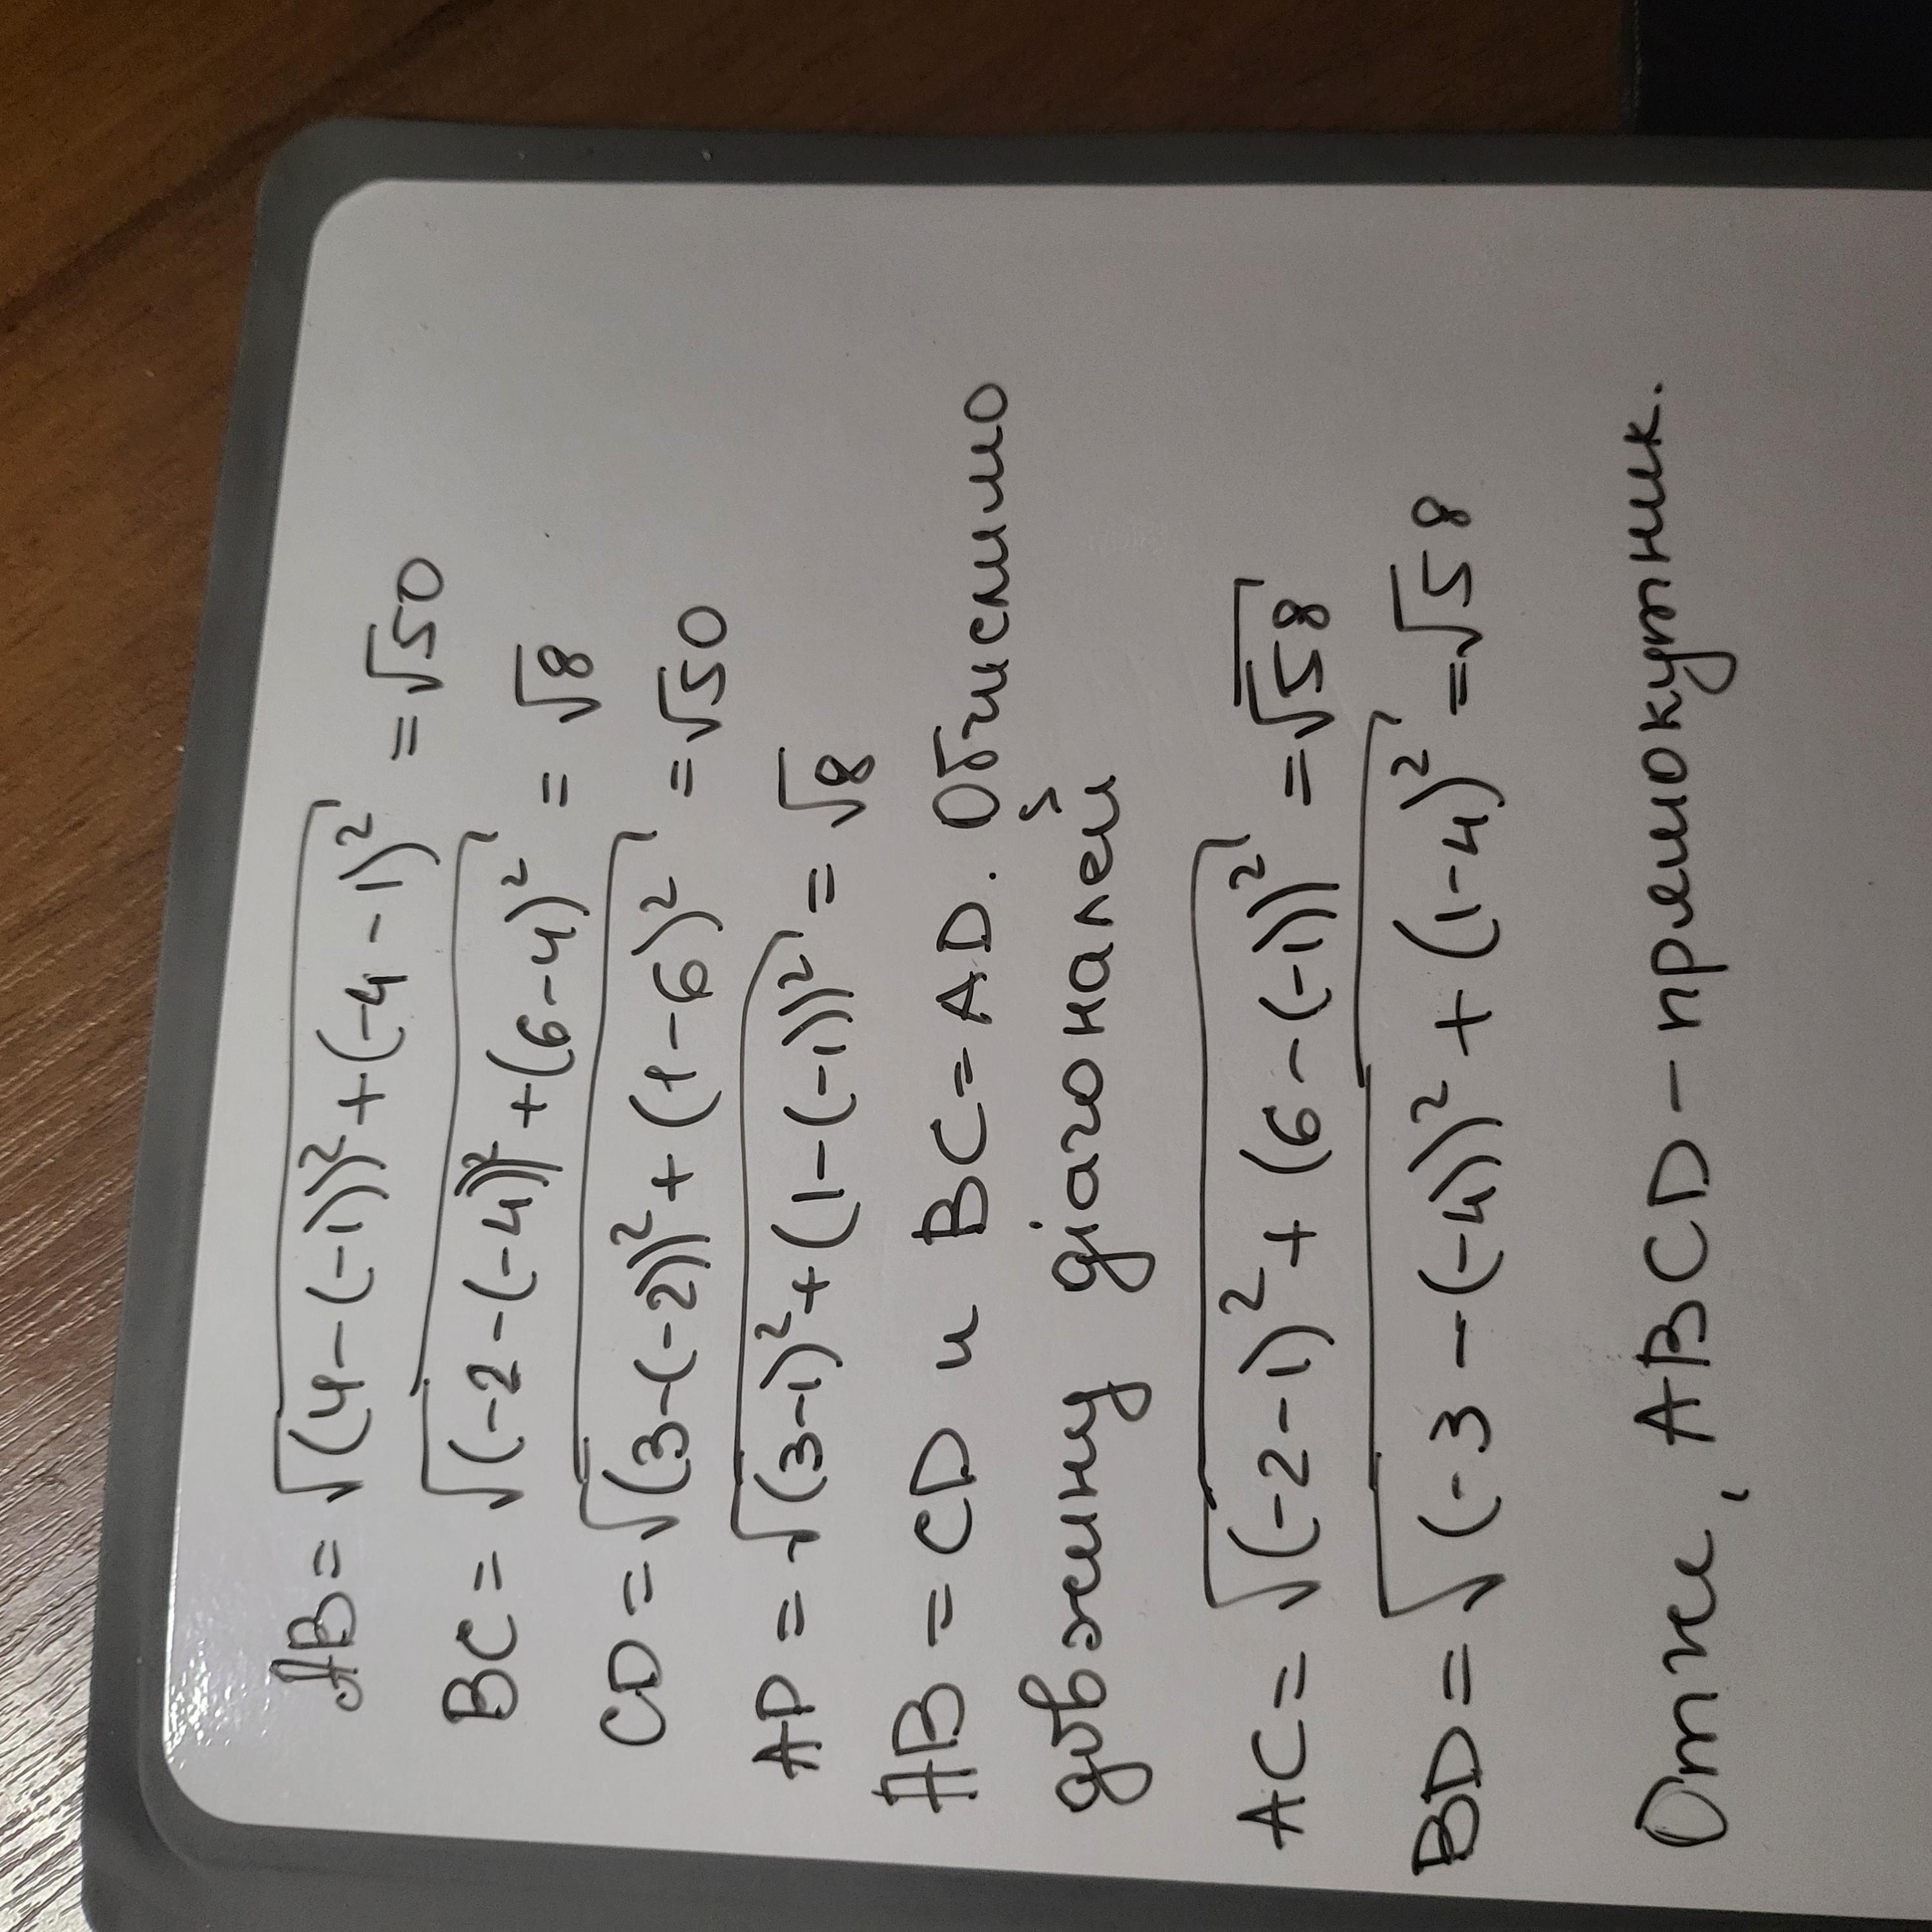 AB = √(4-(-1))² + (-4-1)² = √50
BC = √(-2-(-4))² + (6-4)² = √8
CD = √(3-(-2))² + (1-6)² = √50
AD = √(3-1)² + (1-(-1))² = √8
AB = CD и BC = AD. Обчислимо
довжину діагоналей
AC = √(-2-1)² + (6-(-1))² = √58
BD = √(-3-(-4))² + (1-4)² = √58
Отже, ABCD - прямокутник.